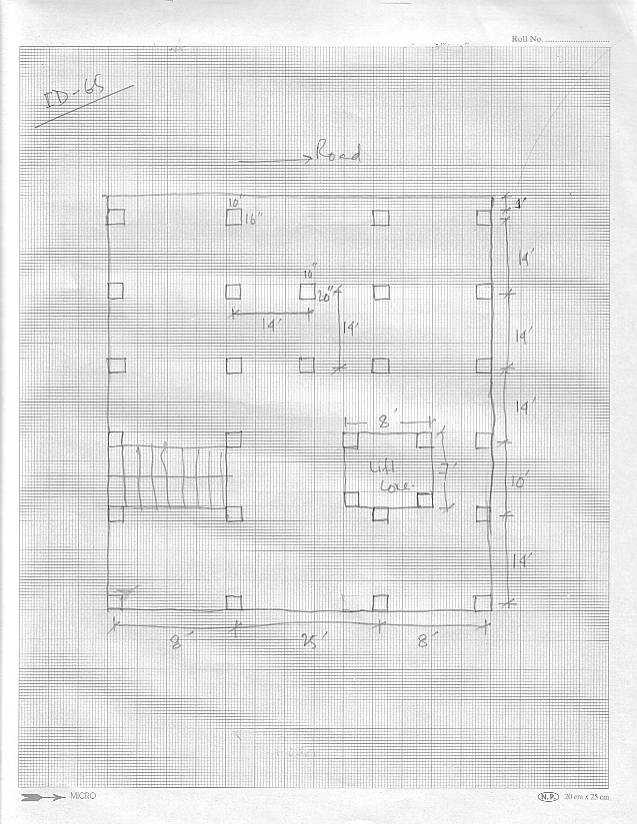 Roll No. ........................
ID-65
Road
10"
16"
1'
14'
10"
20"
14'
14'
14'
14'
8'
Lift
Core.
7'
10'
14'
8'
25'
8'
MICRO
N.P. 20 cm x 25 cm